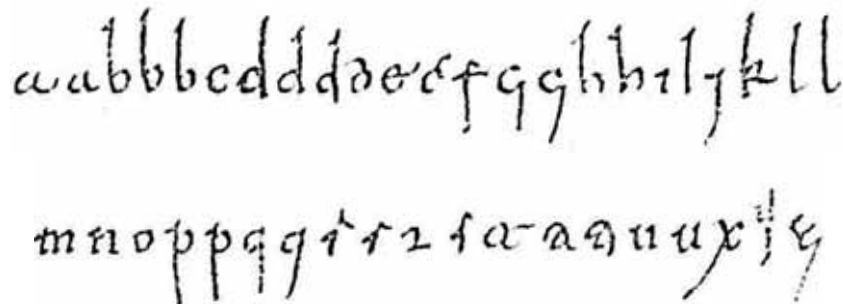 aabbbcddddeefgghhiijkll
mnoppqqrrrstttuuxyz